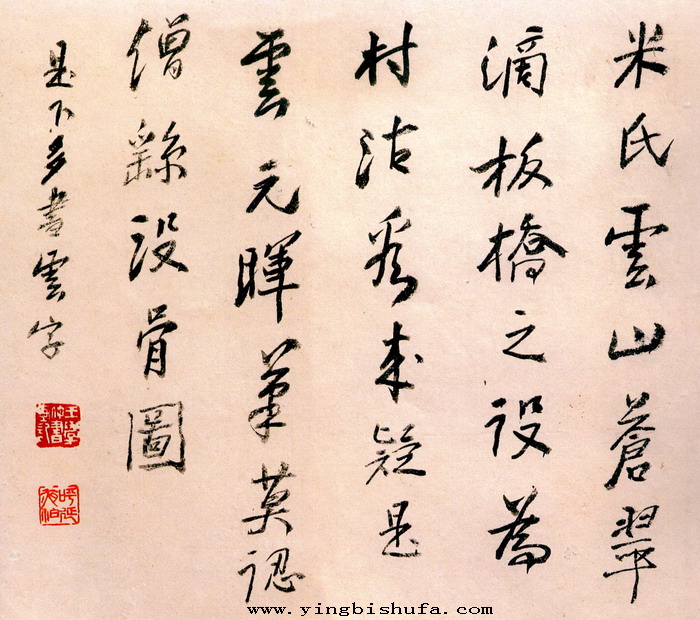 米氏雲山蒼翠
滴板橋之設為
村沽看來疑是
雲元暉筆莫認
僧繇設骨圖
是下多書雲字
www.yingbishufa.com